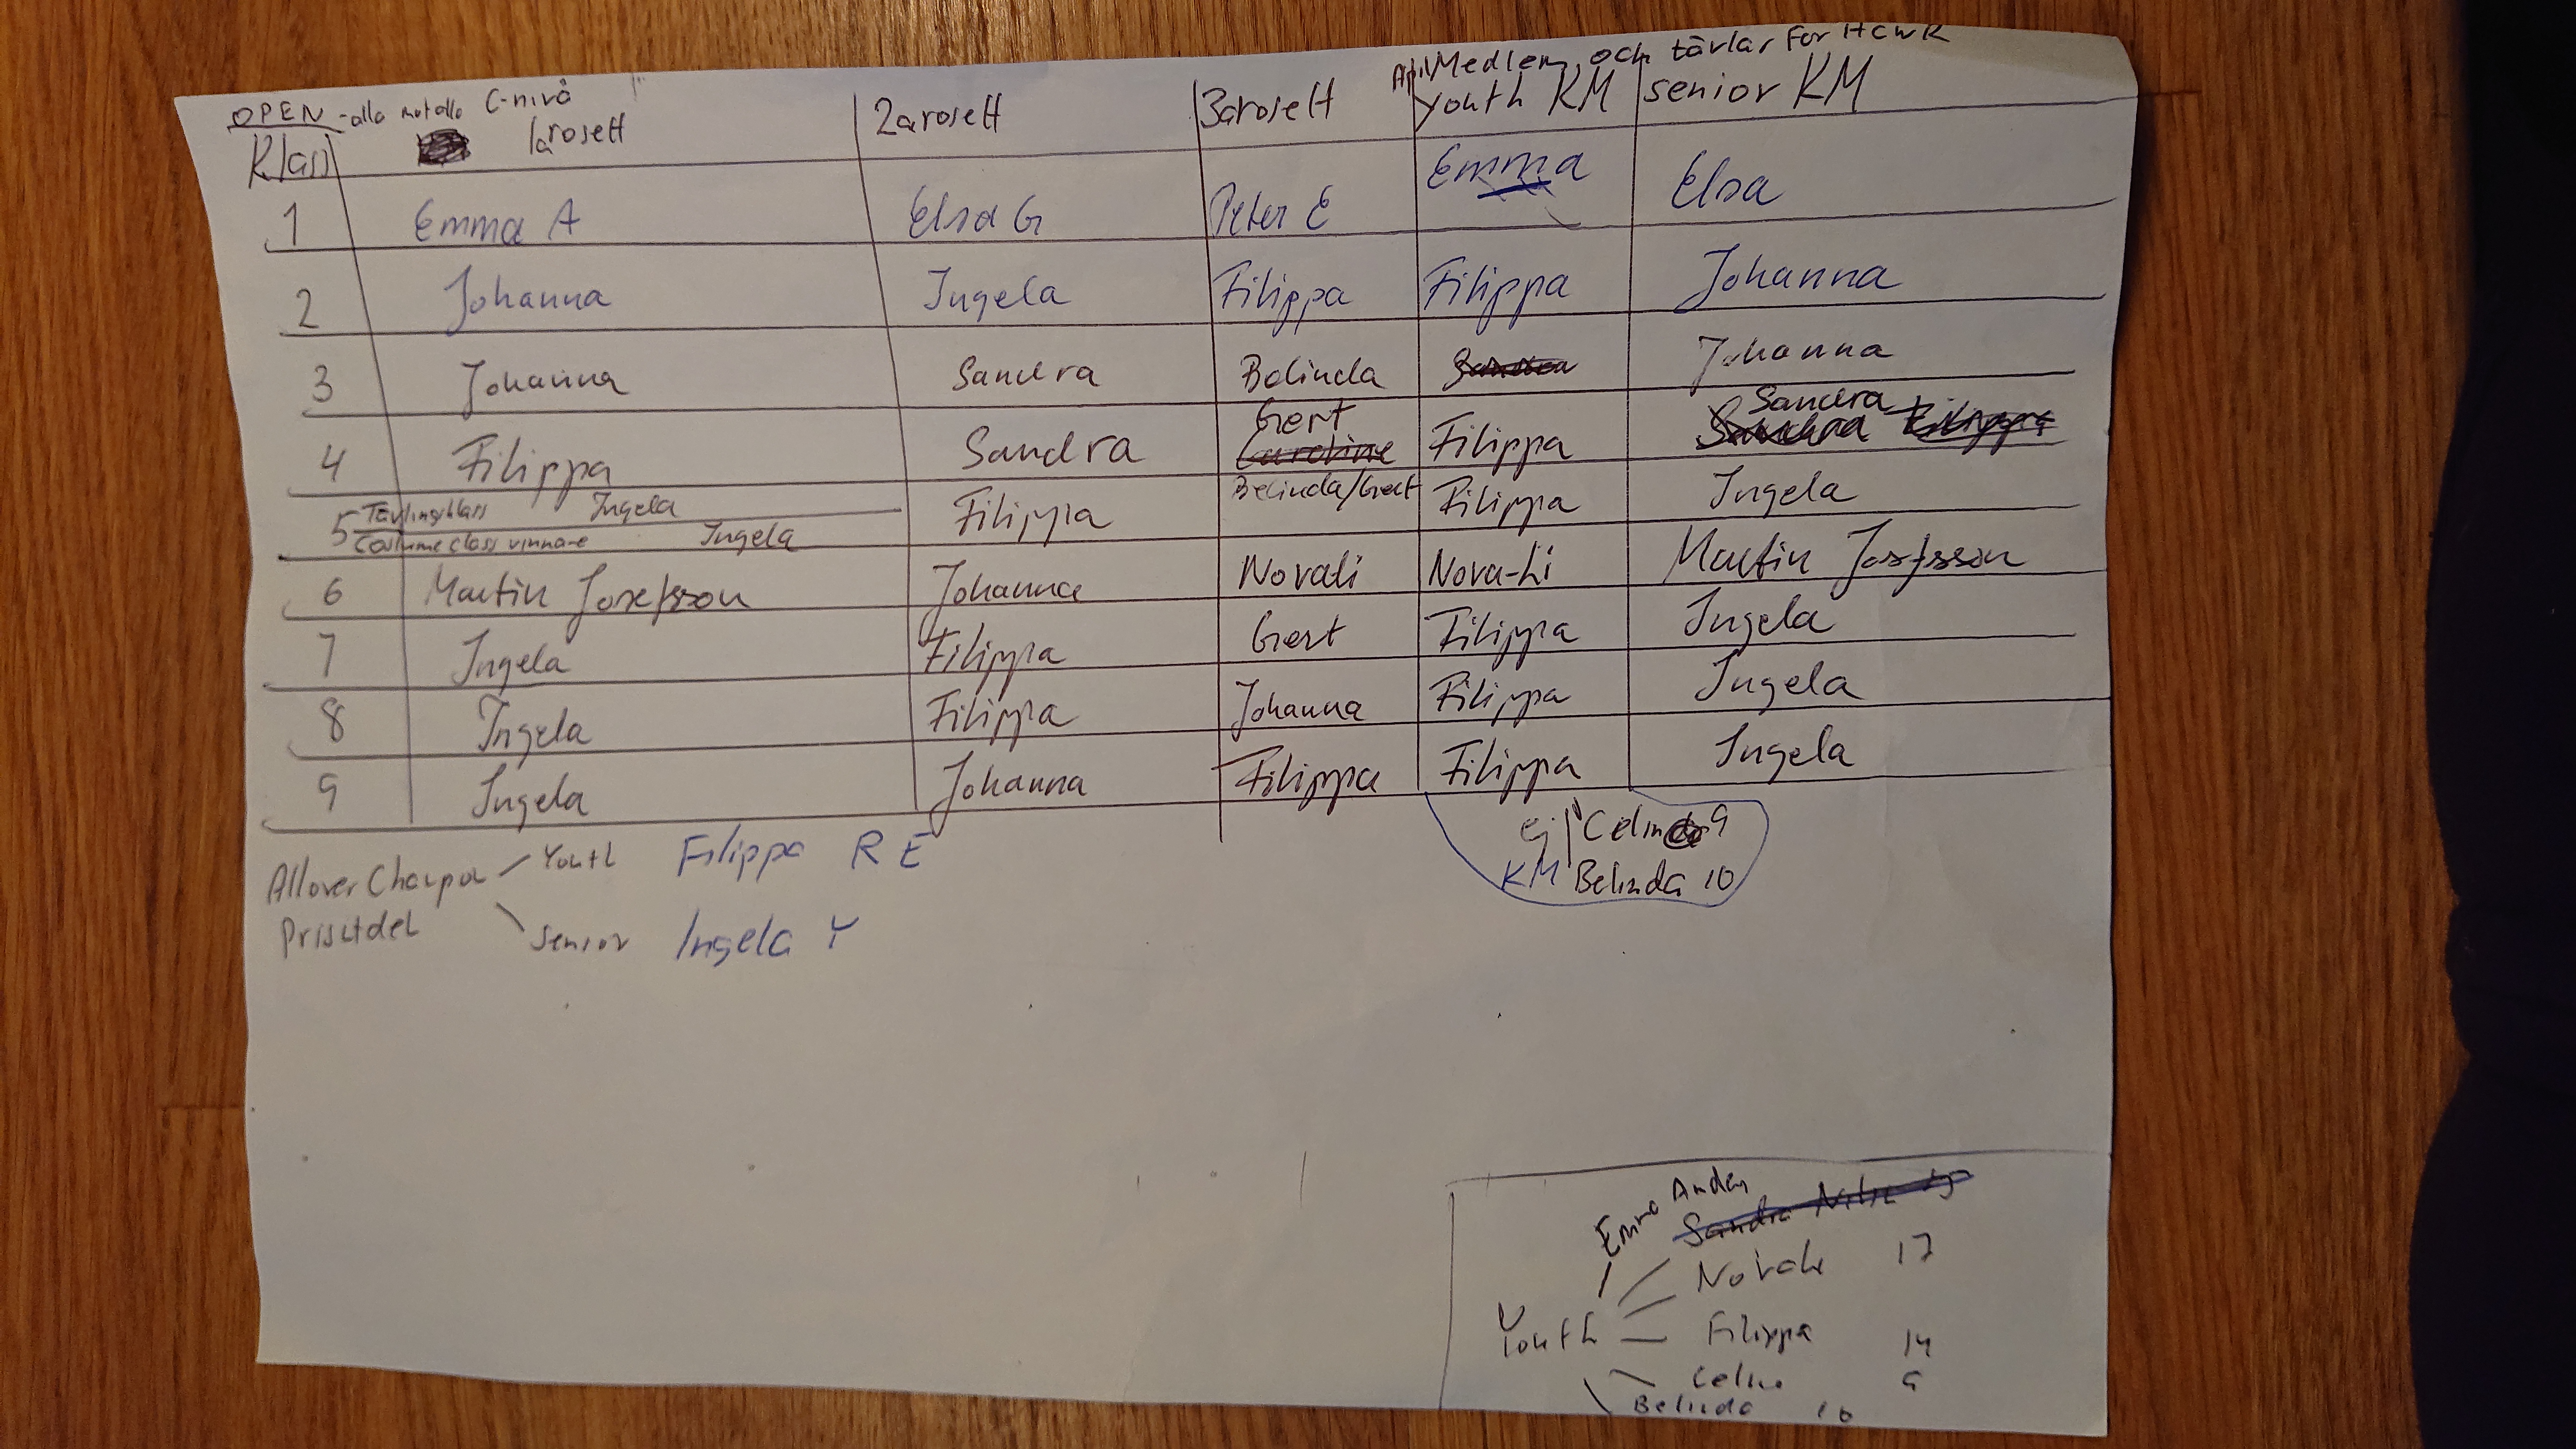 Medlem och tävlar för HCWR
OPEN - alla mot alla C-nivå
Klass 1a rosett 2a rosett 3a rosett Youth KM senior KM
1 Emma A Elsa G Peter E Emma Elsa
2 Johanna Ingela Filippa Filippa Johanna
3 Johanna Sandra Belinda Sandra Johanna
4 Filippa Sandra Gert Caroline Filippa Sandra Sandra Filippa
5 Tävlingsklass Ingela Filippa Belinda/Gert Filippa Ingela
Costume class vinnare Ingela
6 Martin Josefsson Johanna Novali Nova-Li Martin Josefsson
7 Ingela Filippa Gert Filippa Ingela
8 Ingela Filippa Johanna Filippa Ingela
9 Ingela Johanna Filippa Filippa Ingela
ej Celin 9
KM Belinda 10
Allover Youth Filippa R E
Prisutdel Senior Ingela Y
Emma Anden
Sandra
Novali 17
Youth Filippa 14
Celine 9
Belinda 10